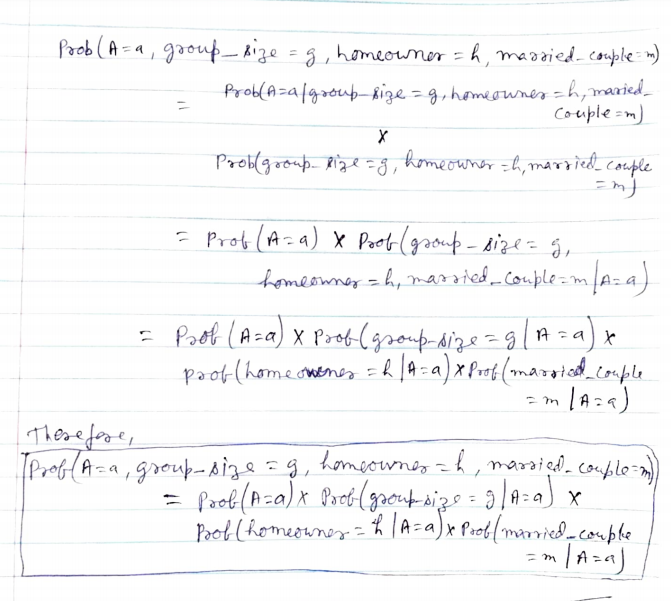 Prob(A=a, group_size = g, homeowner = h, married_couple=m)
= Prob(A=a/group_size = g, homeowner = h, maried_
couple=m)
x
Prob(group_size = g, homeowner = h, married_couple
= m)
= Prob(A=a) x Prob(group_size = g,
homeowner = h, married_couple=m | A=a)
= Prob(A=a) x Prob(group_size = g | A = a) x
prob(homeowner = h | A=a) x Prob(married_couple
= m | A=a)
Therefore,
Prob(A=a, group_size = g, homeowner = h, married_couple=m)
= Prob(A=a) x Prob(group_size = g | A=a) x
Prob(homeowner = h | A=a) x Prob(married_couple
= m | A=a)